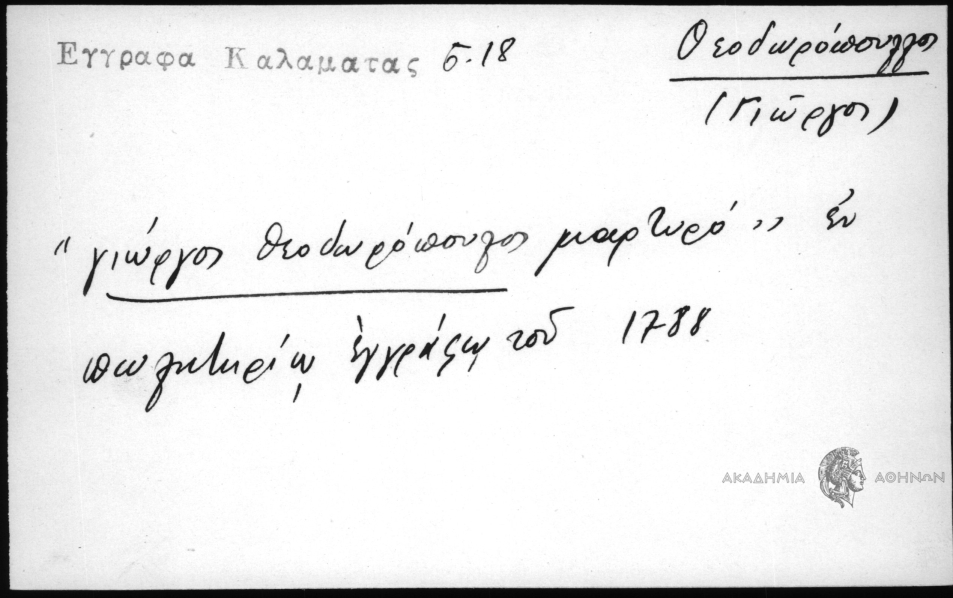 Εγγραφα Καλαματας 5.18
Θεοδωρόπουλος
(Γιώργος)
"γιώργος θεοδωρόπουλος μαρτυρό" ἐν
πωλητηρίῳ ἐγγράφῳ τοῦ 1788
ΑΚΑΔΗΜΙΑ ΑΘΗΝΩΝ